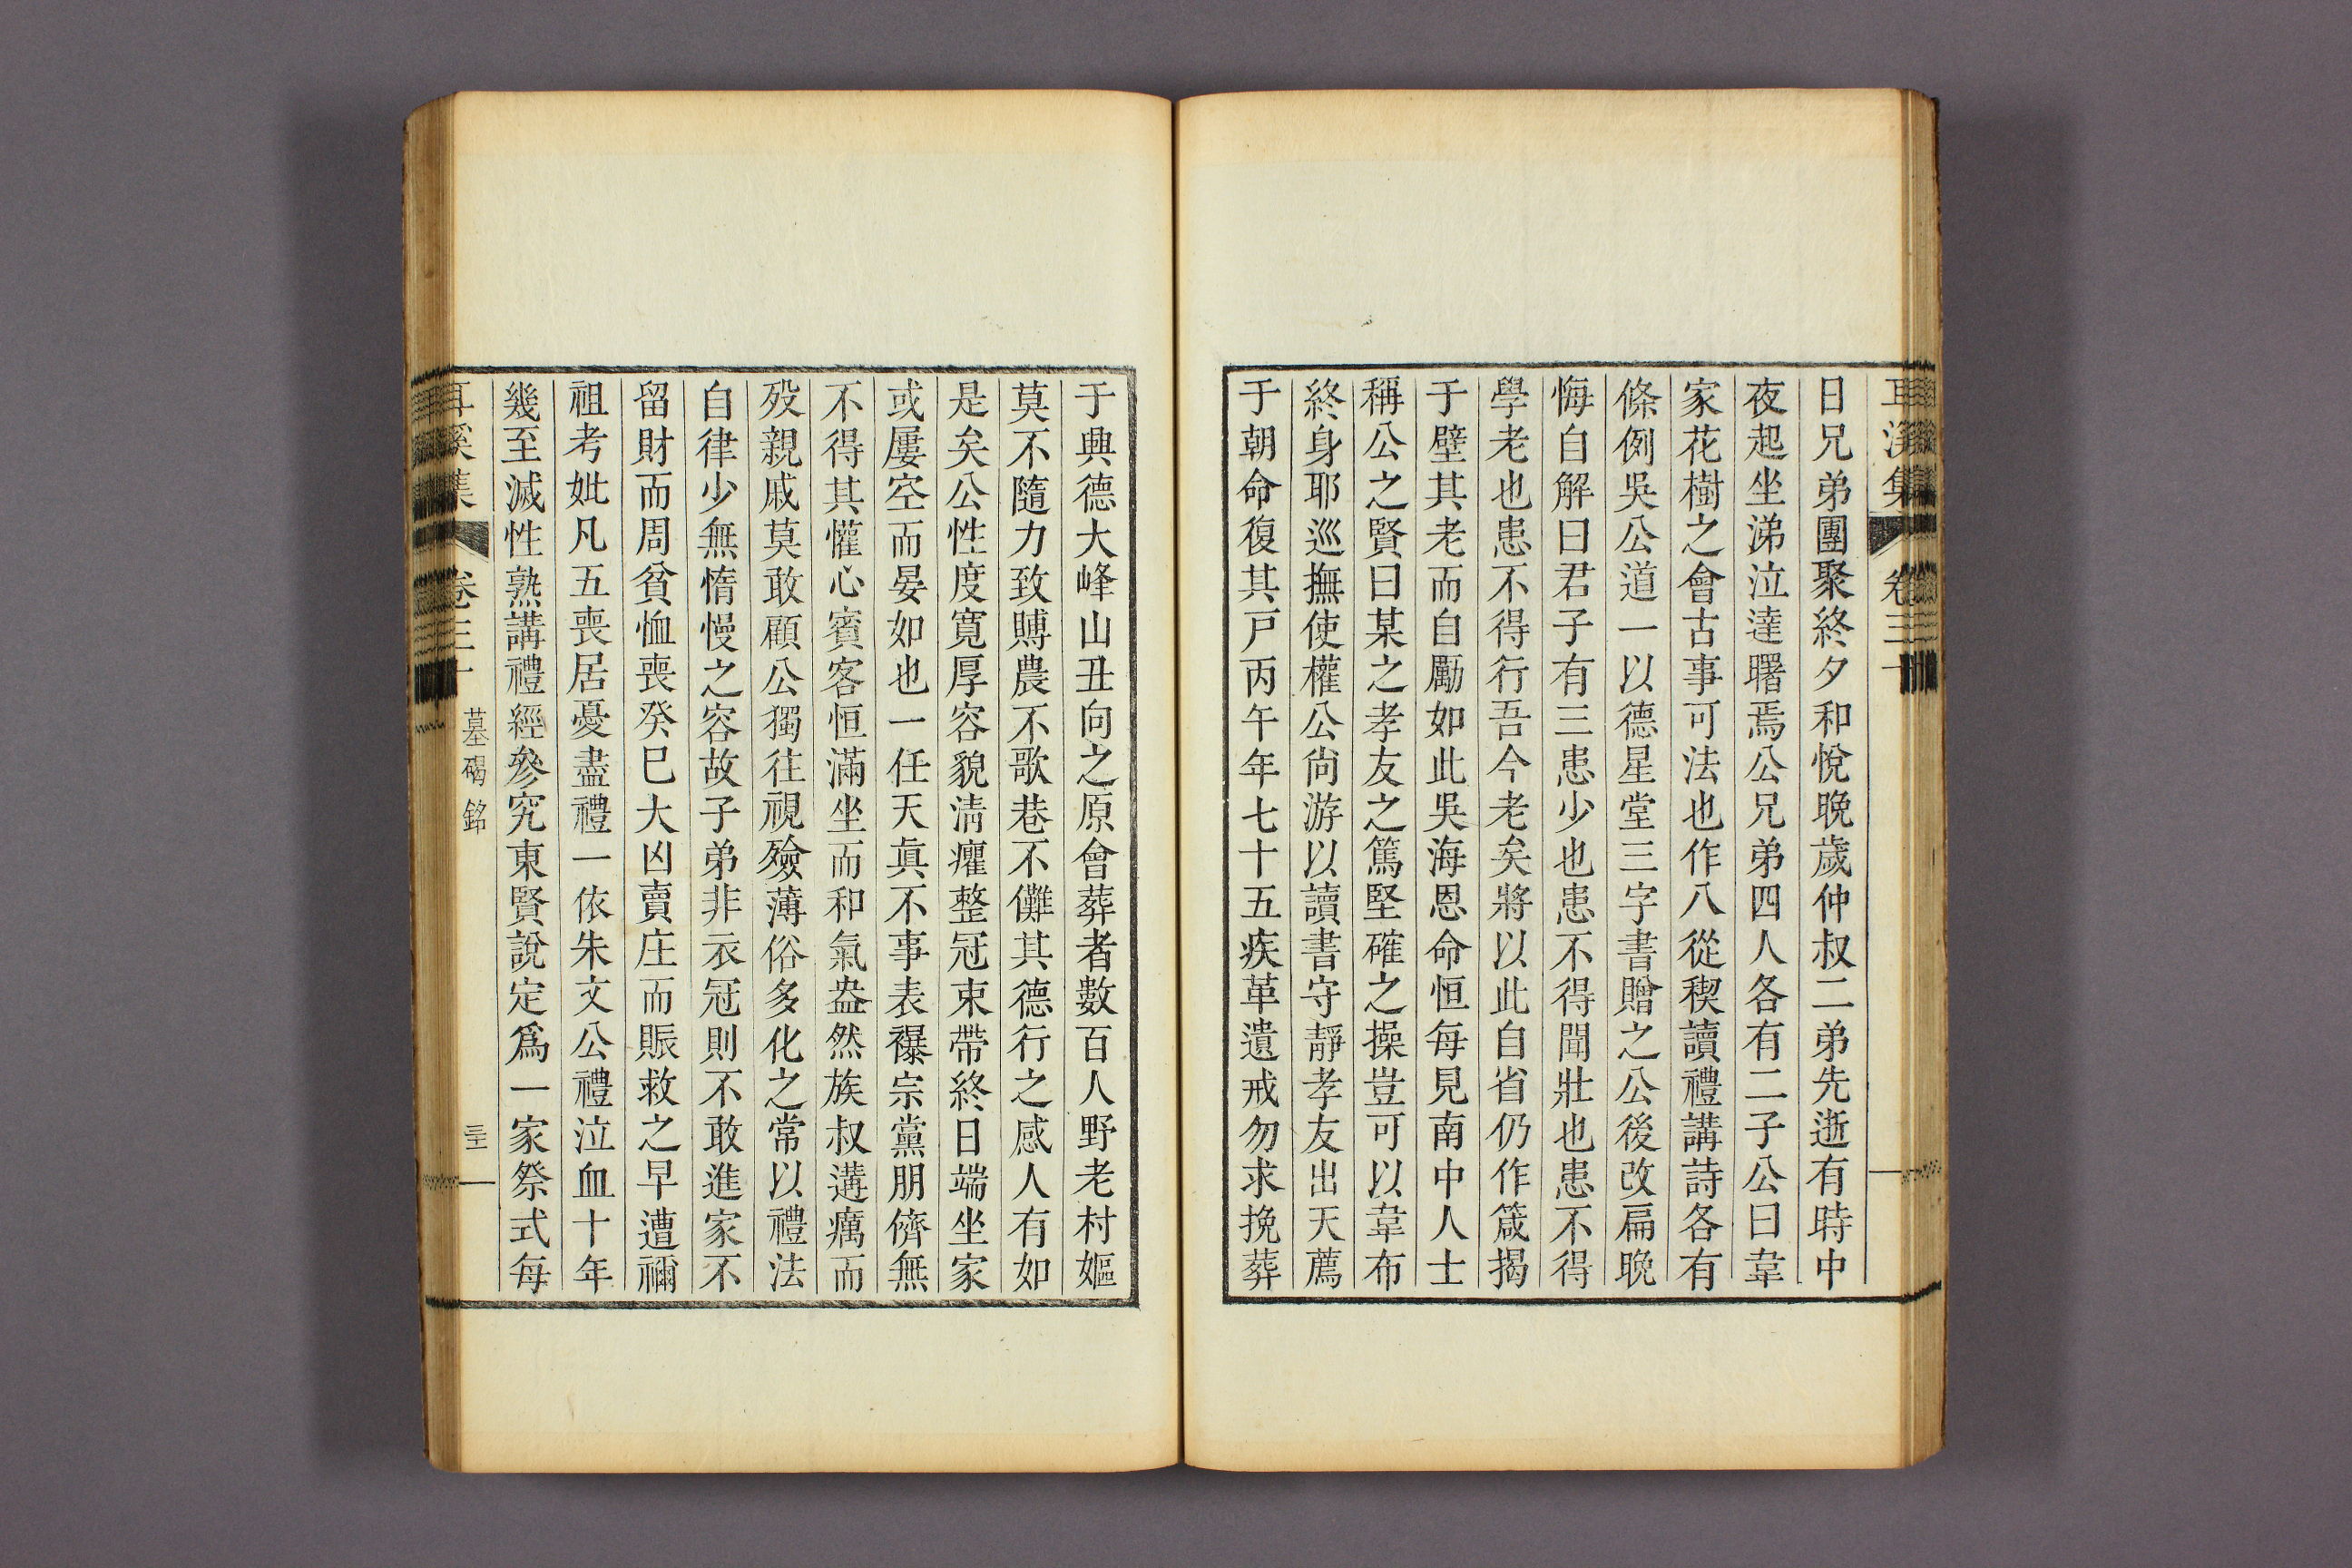 耳溪集 卷三十
日兄弟團聚終夕和悅晩歲仲叔二弟先逝有時中
夜起坐涕泣達曙焉公兄弟四人各有二子公曰韋
家花樹之會古事可法也作八從稧讀禮講詩各有
條例吳公道一以德星堂三字書贈之公後改扁晩
悔自解曰君子有三患少也患不得聞壯也患不得
學老也患不得行吾今老矣將以此自省仍作箴揭
于壁其老而自勵如此吳海恩命恒每見南中人士
稱公之賢曰某之孝友之篤堅確之操豈可以韋布
終身耶巡撫使權公尙游以讀書守靜孝友出天薦
于朝命復其戶丙午年七十五疾革遺戒勿求挽葬
于興德大峰山丑向之原會葬者數百人野老村嫗
莫不隨力致賻農不歌巷不儺其德行之感人有如
是矣公性度寬厚容貌淸癯整冠束帶終日端坐家
或屢空而晏如也一任天眞不事表襮宗黨朋儕無
不得其懽心賓客恒滿坐而和氣盎然族叔遘癘而
歿親戚莫敢顧公獨往視殮薄俗多化之常以禮法
自律少無惰慢之容故子弟非衣冠則不敢進家不
留財而周貧恤喪癸巳大凶賣庄而賑救之早遭禰
祖考妣凡五喪居憂盡禮一依朱文公禮泣血十年
幾至滅性熟講禮經參究東賢說定爲一家祭式每
耳溪集 卷三十 墓碣銘